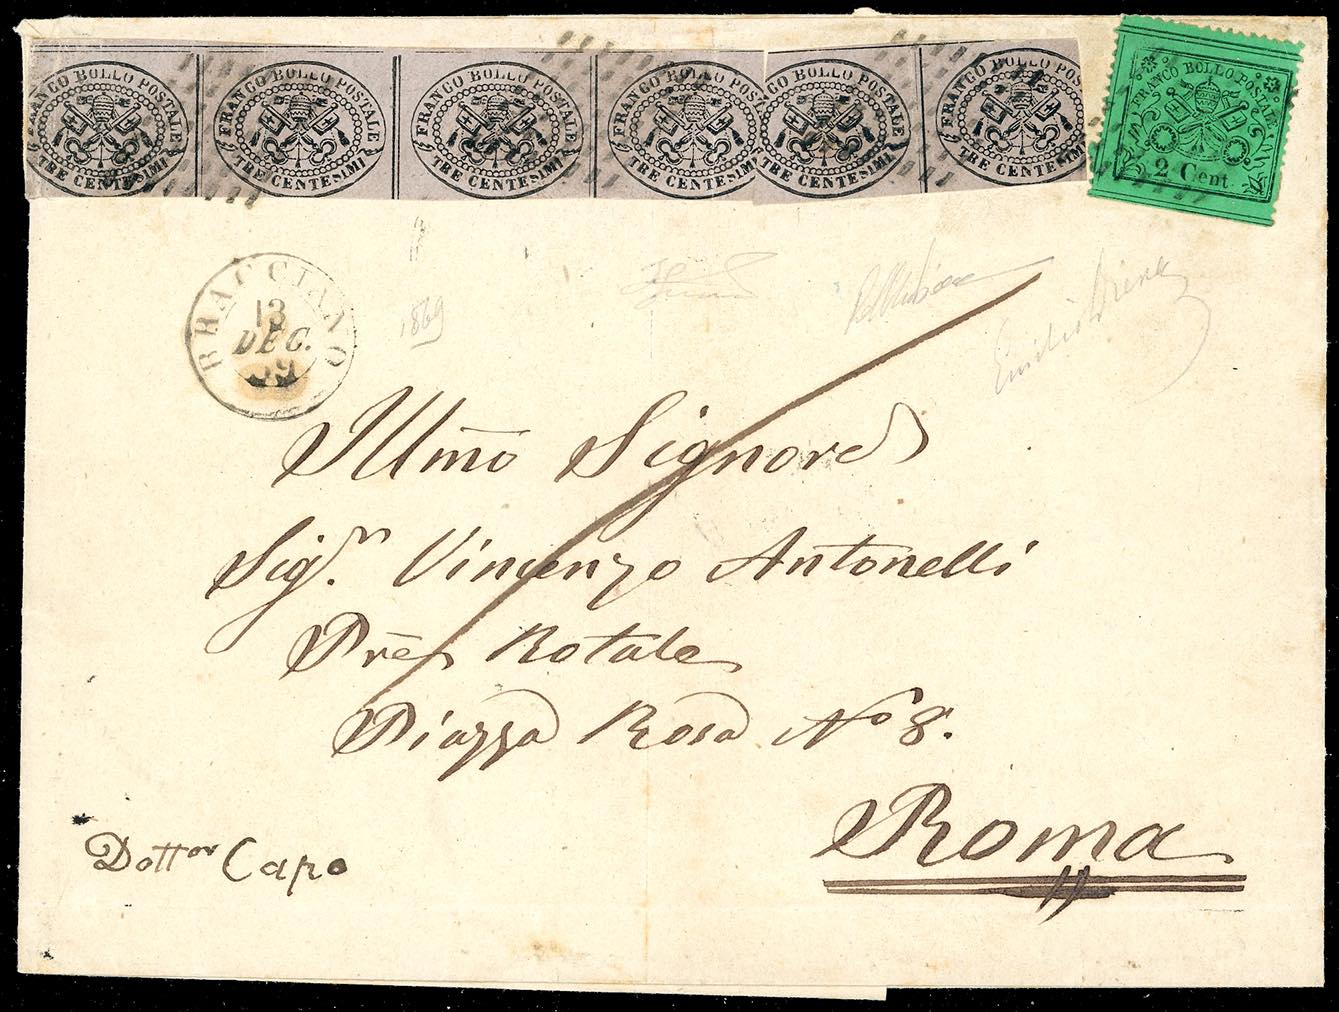 FRANCO BOLLO POSTALE
TRE CENTESIMI
FRANCO BOLLO POSTALE
TRE CENTESIMI
FRANCO BOLLO POSTALE
TRE CENTESIMI
FRANCO BOLLO POSTALE
TRE CENTESIMI
FRANCO BOLLO POSTALE
TRE CENTESIMI
FRANCO BOLLO POSTALE
TRE CENTESIMI
FRANCO BOLLO POSTALE
2 Cent.
BRACCIANO
13
DEC.
69
1869
Emilio Diena
Illmo Signore
Sigr. Vincenzo Antonelli
Rotale
Piazza Rosa No 8.
Roma
Dottor Capo